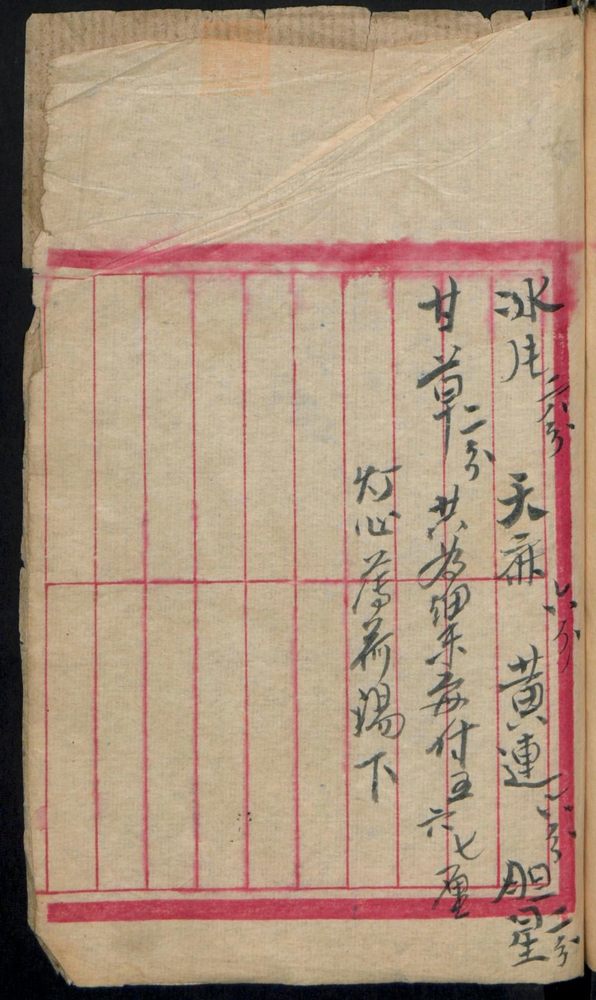 冰片二分 天麻六分 黄連六分 胆星二分
甘草二分 共為細末每付五六七厘
灯心薄荷錫下